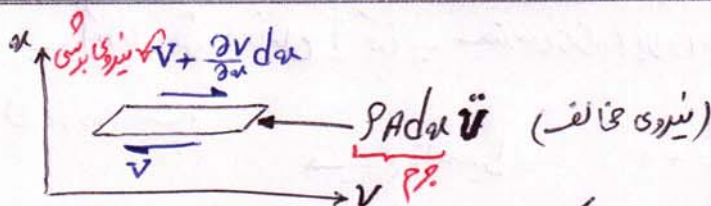 x
نیروی برشی V + ∂V/∂x dx
ρAdx v̈ (نیروی مخالف)
V
جرم
V